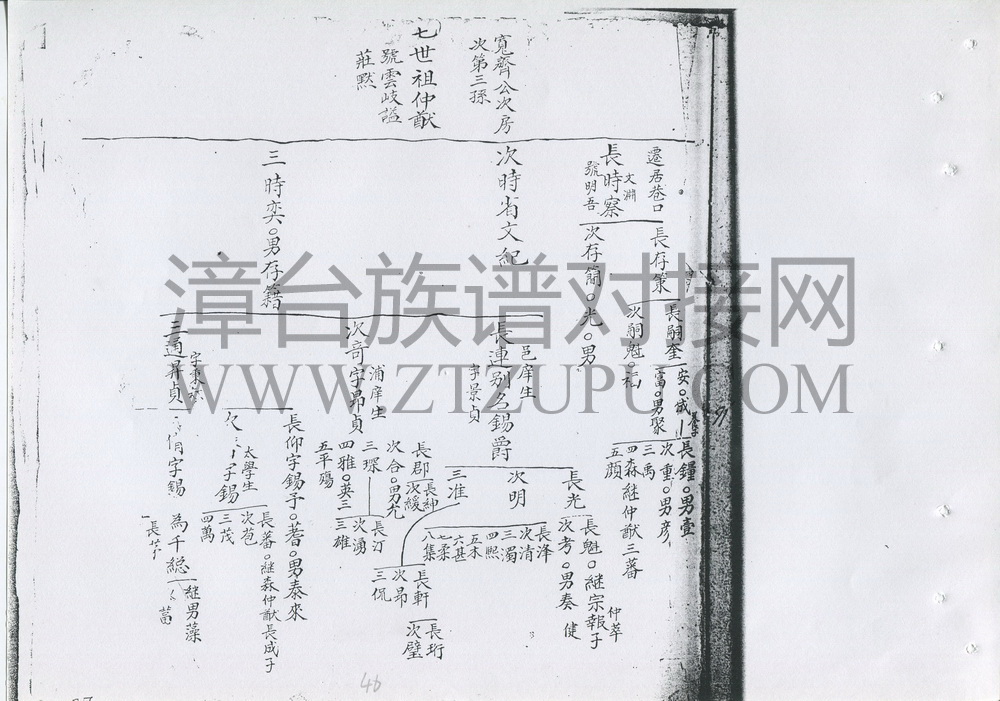 寬齊公次房
次第三孫
七世祖仲猷
號雲岐謚
莊默
遷居巷口
長時察
文淵
號明吾
次時省文紀
三時奕。男存籍
長存策
次存簡。光。男
長嗣奎
次嗣魁
安。成
富。男聚
長鐘。男壹
次重。男彥
三禹
四森繼仲猷三蕃
五顏
邑庠生
長連別名錫爵
字景貞
浦庠生
次奇字昂貞
三通昇貞
長光
次明
三准
長魁。繼宗報子
仲苹
次考。男奏
健
長澤
次清
三濁
四熙
五木
六甚
七柔
八集
長軒
次昂
三侃
長珩
次璧
長郡
次合。男尤
三琛
四雅。英三
五平殤
長紳
次緩
長汀
次湧
三雄
長仰字錫予。蓍。男泰來
太學生
字錫
長蕃。繼森仲猷長成子
次苞
三茂
四萬
字錫
為千総
繼男藻
菖
46
漳台族谱对接网
WWW.ZTZUPU.COM